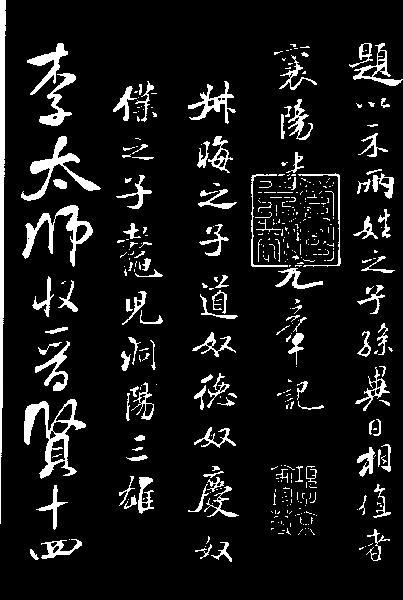 題以示兩姓之子孫異日相值者
襄陽米元章記
叔晦之子道奴德奴慶奴
僕之子鼇兒洞陽三雄
李太師收晉賢十四